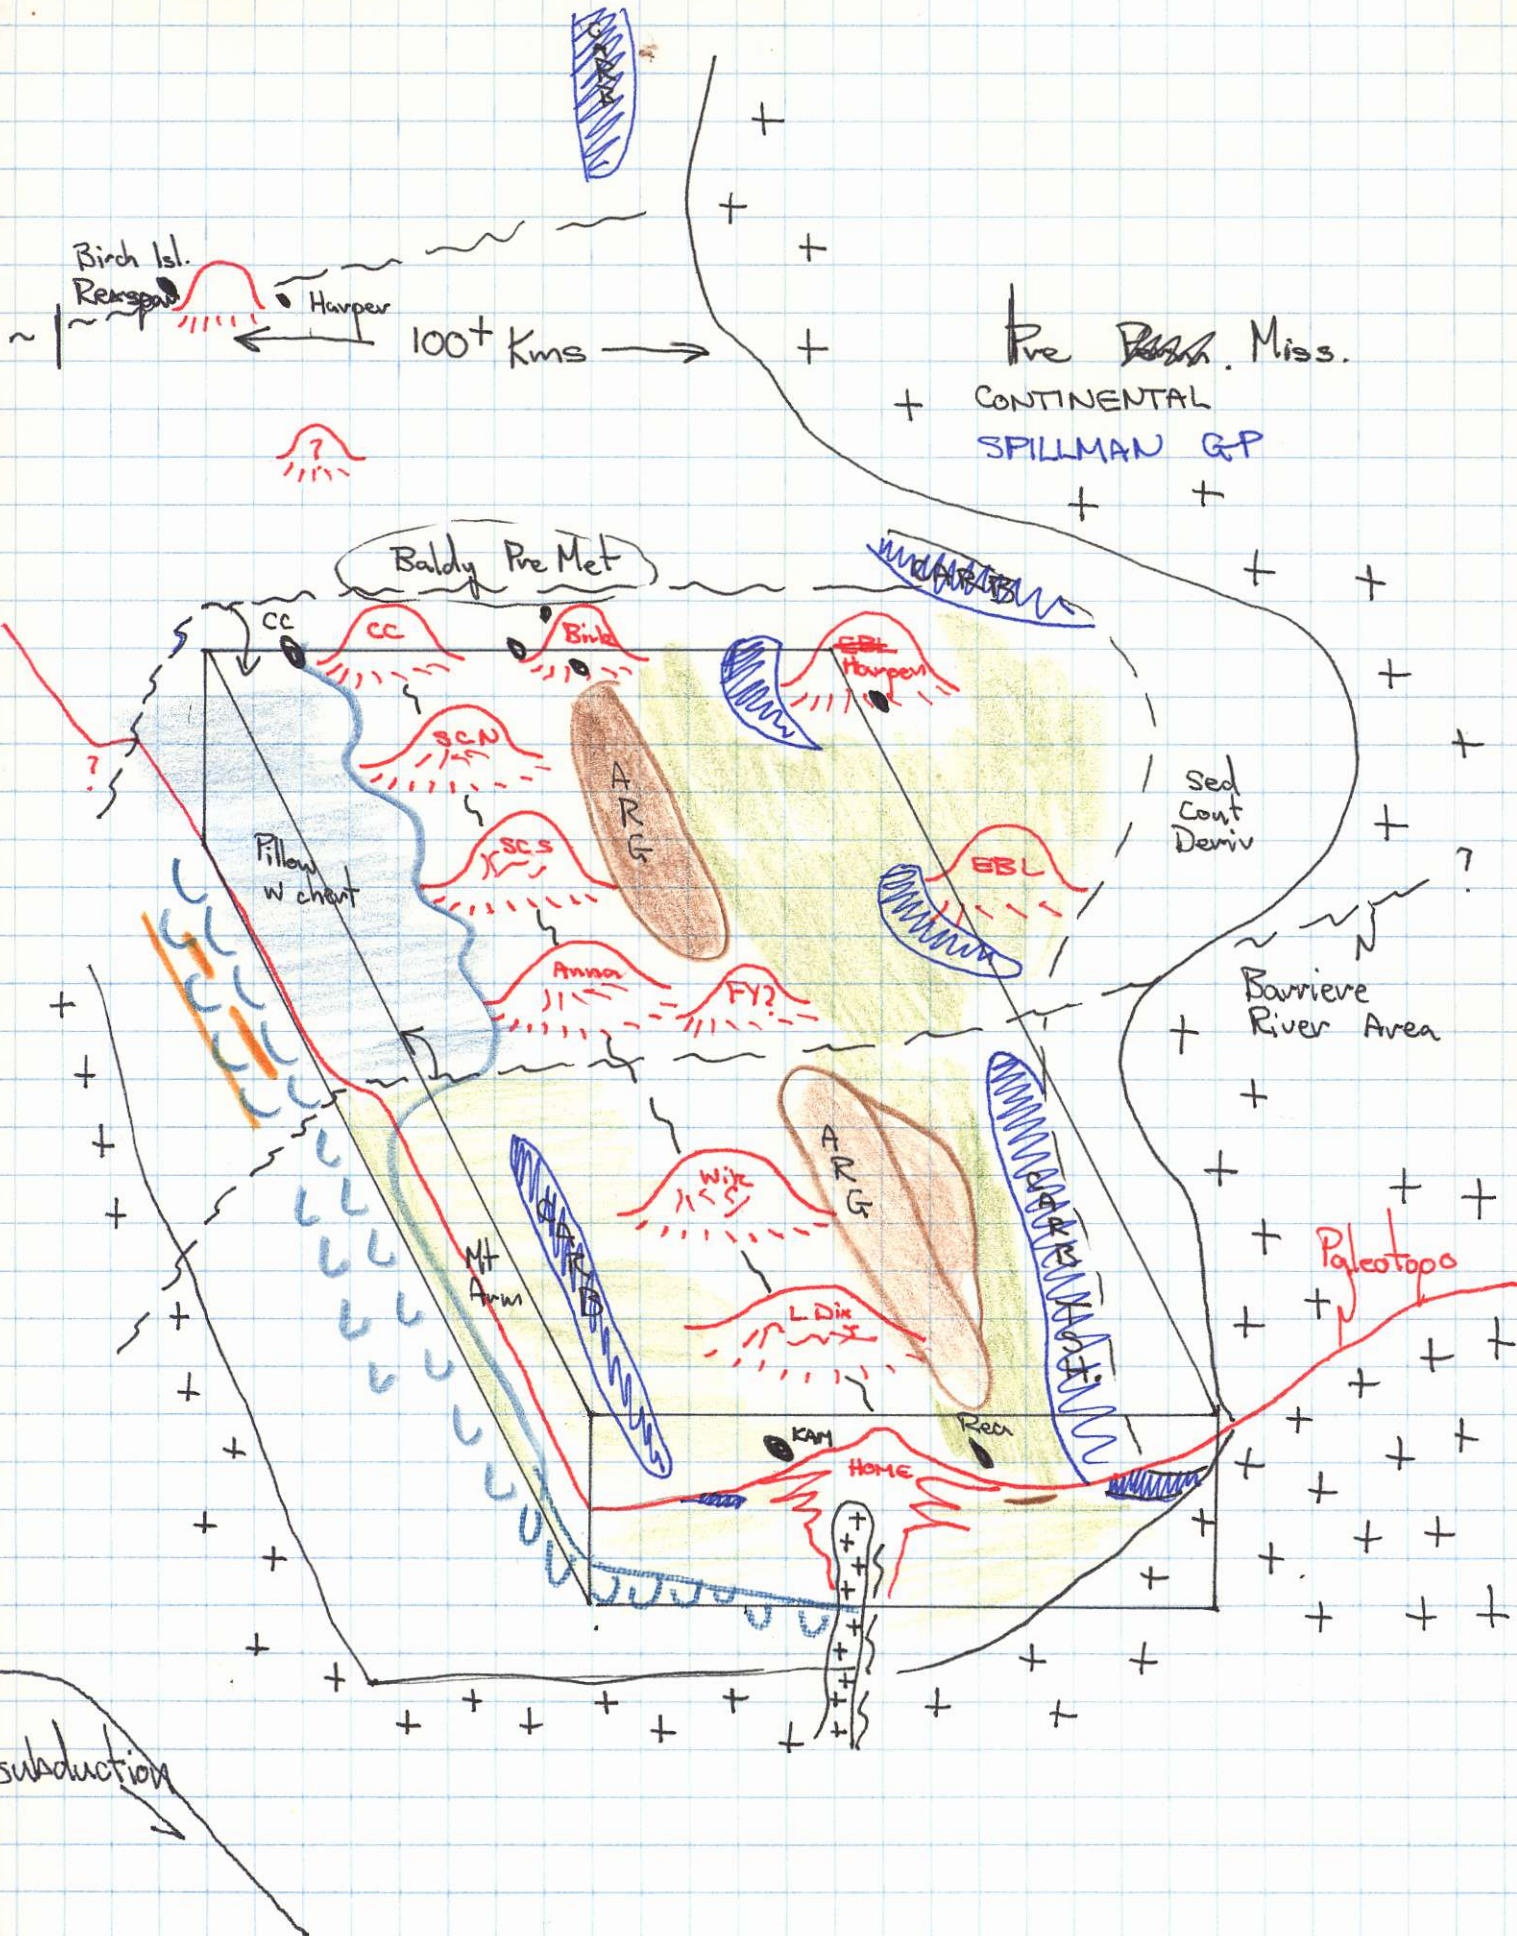 CARB
Birch Isl.
Rexspar
Harper
100+ Kms
Pre Miss.
CONTINENTAL
SPILLMAN GP
?
Baldy Pre Met
CARB
CC
CC
Birk
EBL
Harper
SCN
?
ARG
Sed
Cont
Deriv
Pillow
w chert
SCS
EBL
?
Anna
FY?
N
Barriere
River Area
ARG
CARB
Wik
CARB
Mt
Arm
L. Dix
Paleotopo
KAM
Rea
HOME
subduction